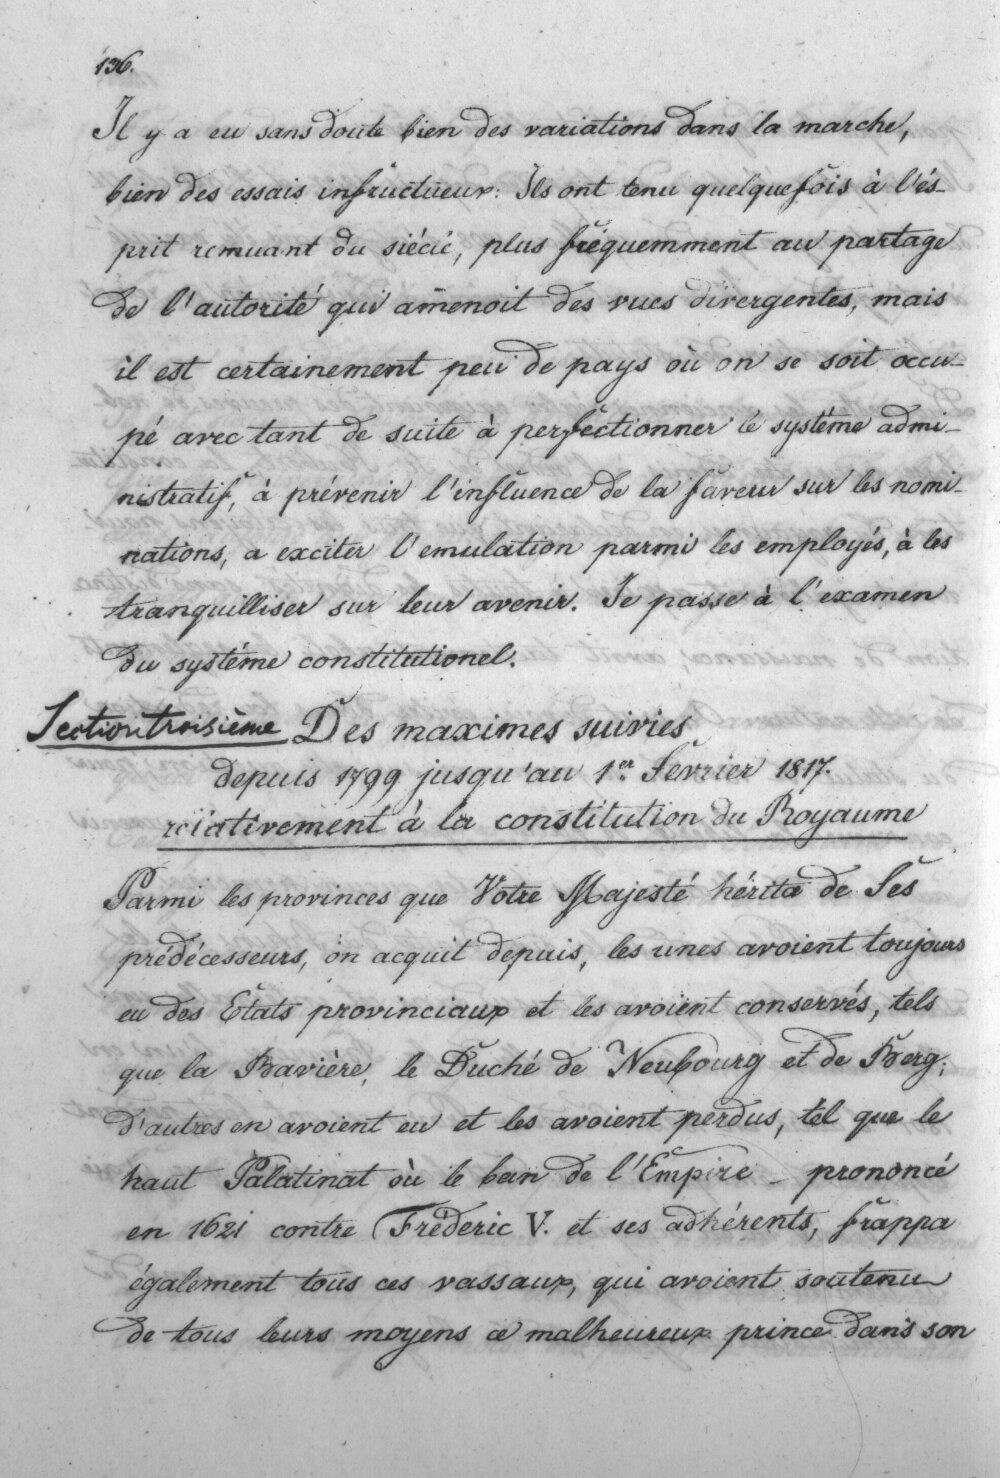 136.
Il y a eu sans doute bien des variations dans la marche,
bien des essais infructueux. Ils ont tenu quelquefois à l'és-
prit remuant du siécle, plus fréquemment au partage
de l'autorité qui amenoit des vues divergentes, mais
il est certainement peu de pays où on se soit occu-
pé avec tant de suite à perfectionner le systême admi-
nistratif, à prévenir l'influence de la faveur sur les nomi-
nations, a exciter l'emulation parmi les employés, à les
tranquilliser sur leur avenir. Je passe à l'examen
du systéme constitutionel.
Section troisième Des maximes suivies
depuis 1799 jusqu'au 1er Février 1817.
relativement à la constitution du Royaume
Parmi les provinces que Votre Majesté hérita de Ses
prédécesseurs, on acquit depuis, les unes avoient toujours
eu des Etats provinciaux et les avoient conservés, tels
que la Bavière, le Duché de Neubourg et de Berg;
d'autres en avoient eu et les avoient perdus, tel que le
haut Palatinat où le ban de l'Empire prononcé
en 1621 contre Fréderic V. et ses adhérents, frappa
également tous ces vassaux, qui avoient soutenu
de tous leurs moyens ce malheureux prince dans son